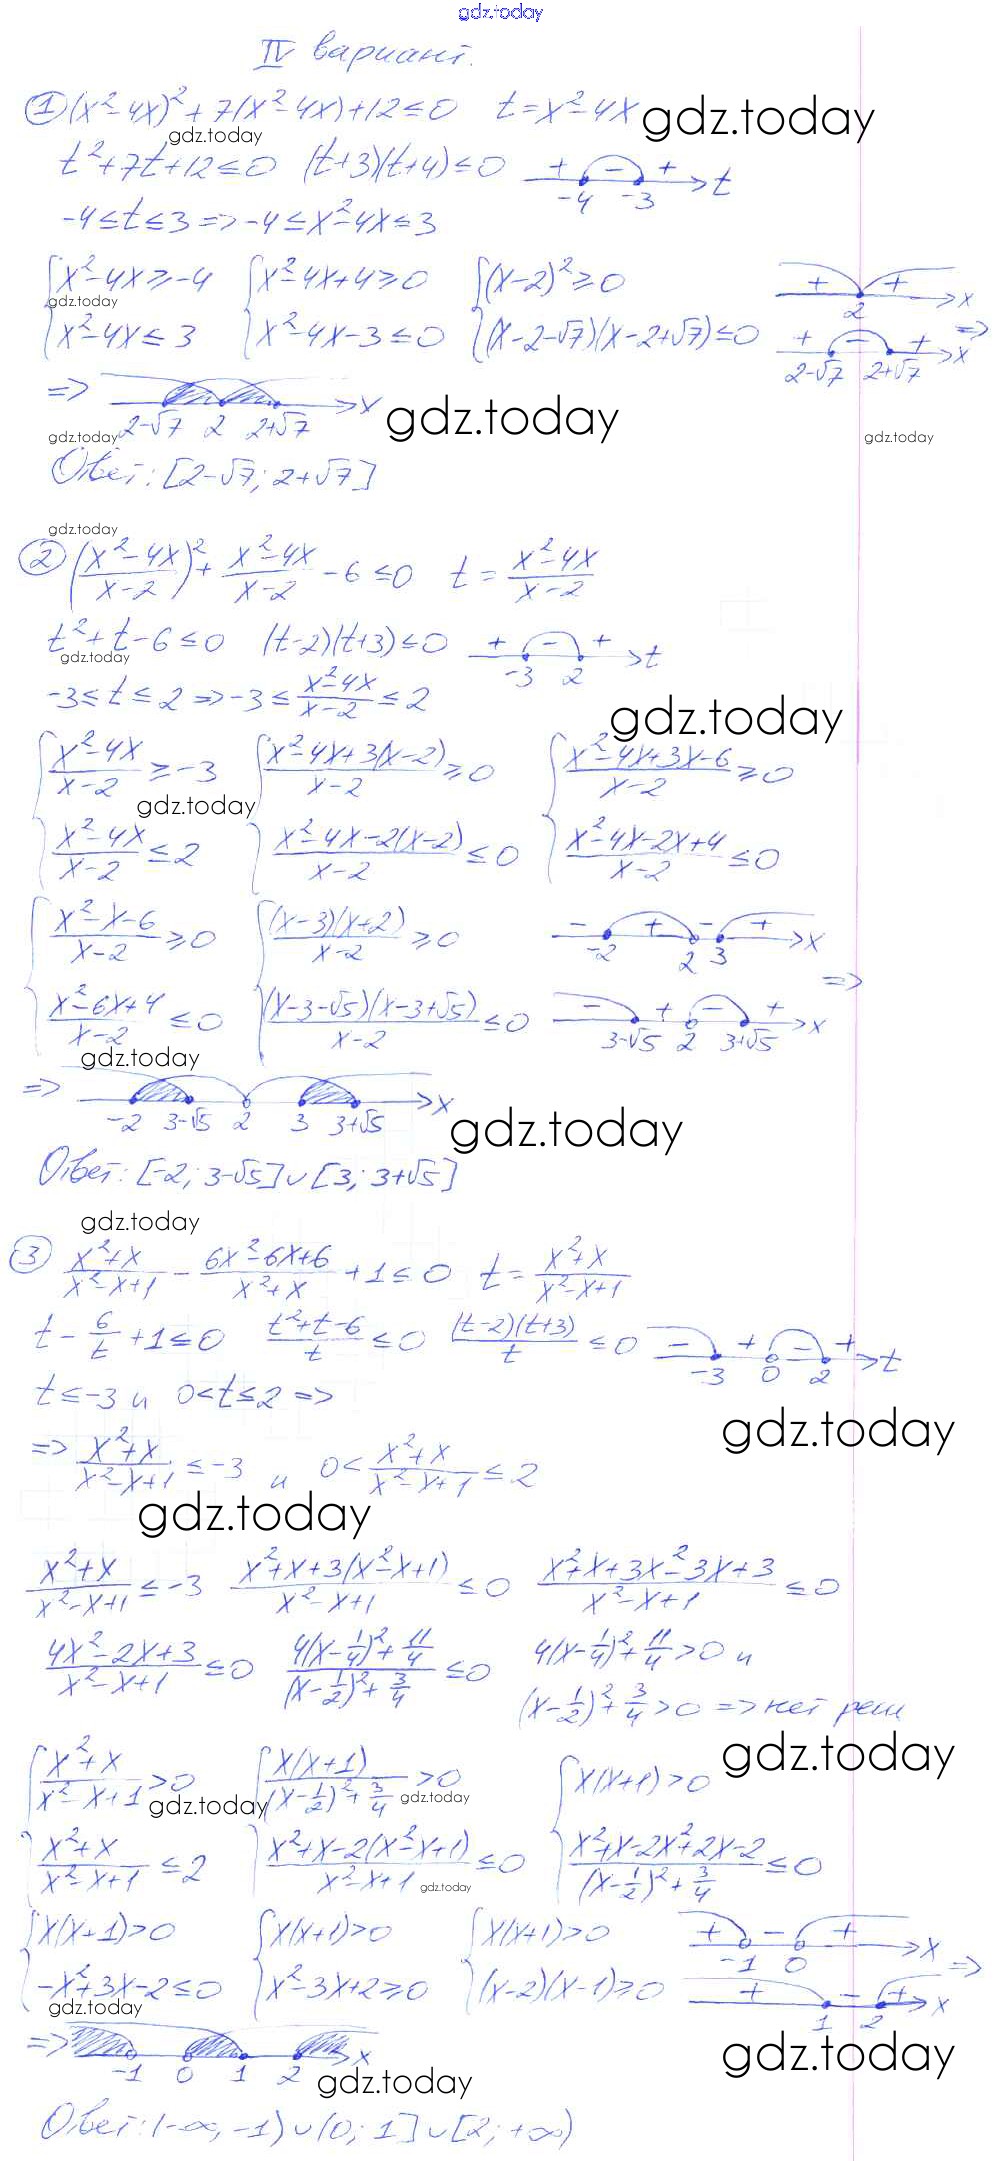 gdz.today
IV вариант.
① (x²-4x)²+7(x²-4x)+12≤0 t=x²-4x gdz.today
gdz.today
t²+7t+12≤0 (t+3)(t+4)≤0 + - + -4 -3 t
-4≤t≤3=>-4≤x²-4x≤3
{x²-4x≥-4 {x²-4x+4≥0 {(x-2)²≥0 + + 2 x
gdz.today
{x²-4x≤3 {x²-4x-3≤0 {(x-2-√7)(x-2+√7)≤0 + - + 2-√7 2+√7 x =>
=> 2-√7 2 2+√7 x gdz.today
gdz.today gdz.today
Ответ: [2-√7; 2+√7]
gdz.today
② ((x²-4x)/(x-2))²+(x²-4x)/(x-2)-6≤0 t=(x²-4x)/(x-2)
t²+t-6≤0 (t-2)(t+3)≤0 + - + -3 2 t
gdz.today
-3≤t≤2=>-3≤(x²-4x)/(x-2)≤2
gdz.today
{(x²-4x)/(x-2)≥-3 {(x²-4x+3(x-2))/(x-2)≥0 {(x²-4x+3x-6)/(x-2)≥0
gdz.today
{(x²-4x)/(x-2)≤2 {(x²-4x-2(x-2))/(x-2)≤0 {(x²-4x-2x+4)/(x-2)≤0
{(x²-x-6)/(x-2)≥0 {((x-3)(x+2))/(x-2)≥0 - + - + -2 2 3 x =>
{(x²-6x+4)/(x-2)≤0 {((x-3-√5)(x-3+√5))/(x-2)≤0 - + - + 3-√5 2 3+√5 x
gdz.today
=> -2 3-√5 2 3 3+√5 x gdz.today
Ответ: [-2; 3-√5]∪[3; 3+√5]
gdz.today
③ (x²+x)/(x²-x+1)-(6x²-6x+6)/(x²+x)+1≤0 t=(x²+x)/(x²-x+1)
t-6/t+1≤0 (t²+t-6)/t≤0 ((t-2)(t+3))/t≤0 - + - + -3 0 2 t
t≤-3 и 0<t≤2=>
gdz.today
=>(x²+x)/(x²-x+1)≤-3 и 0<(x²+x)/(x²-x+1)≤2
gdz.today
(x²+x)/(x²-x+1)≤-3 (x²+x+3(x²-x+1))/(x²-x+1)≤0 (x²+x+3x²-3x+3)/(x²-x+1)≤0
(4x²-2x+3)/(x²-x+1)≤0 (4(x-1/4)²+11/4)/((x-1/2)²+3/4)≤0 4(x-1/4)²+11/4>0 и
(x-1/2)²+3/4>0=>нет реш
gdz.today
{(x²+x)/(x²-x+1)>0 {(x(x+1))/((x-1/2)²+3/4)>0 {x(x+1)>0
gdz.today gdz.today
{(x²+x)/(x²-x+1)≤2 {(x²+x-2(x²-x+1))/(x²-x+1)≤0 {(x²+x-2x²+2x-2)/((x-1/2)²+3/4)≤0
gdz.today
{x(x+1)>0 {x(x+1)>0 {x(x+1)>0 + - + -1 0 x =>
{-x²+3x-2≤0 {x²-3x+2≥0 {(x-2)(x-1)≥0 + - + 1 2 x
gdz.today
=> -1 0 1 2 x gdz.today
gdz.today
Ответ: (-∞, -1)∪(0; 1]∪[2; +∞)